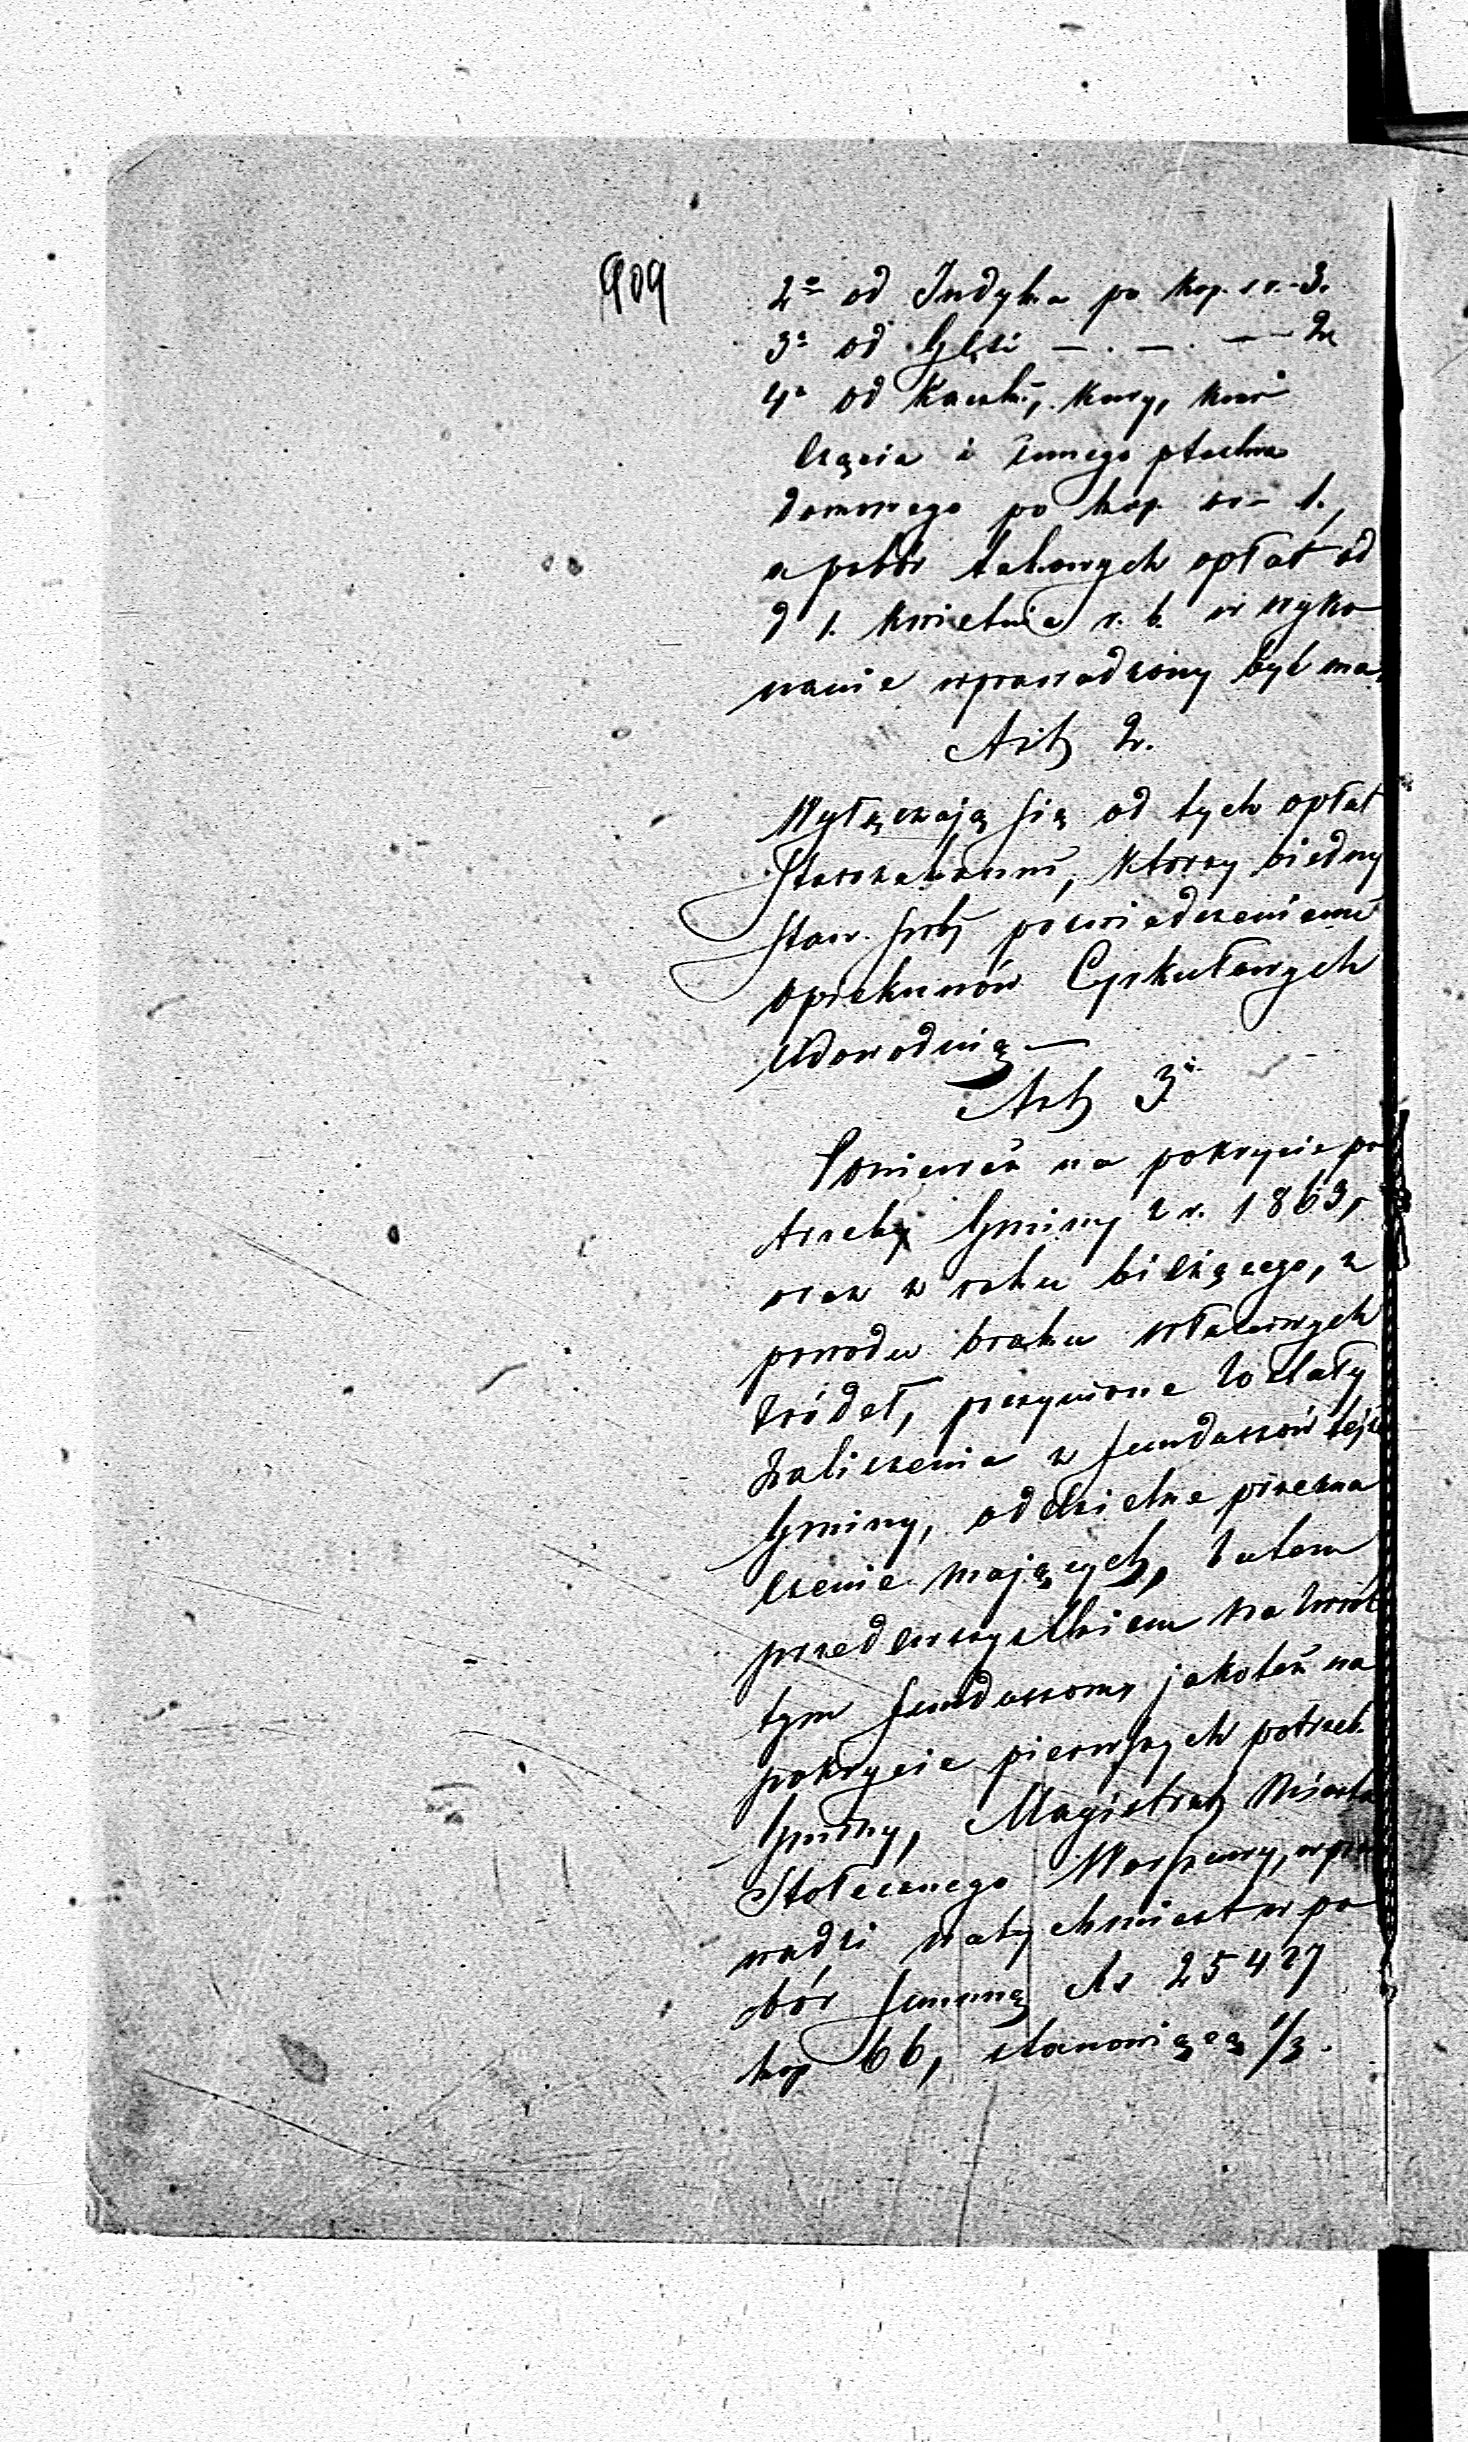 909
2º od Indyka po kop. sr. 3.
3º od Gęsi — . — . — — 2
4º od Kaczki, Kury, kur
częcia i innego ptactwa
domowego po kop. sr. 1.,
a pobór takowych opłat od
d 1. Kwietnia r. b. w wyko
nanie wprowadzony być ma.
Art 2.
Wyłączają się od tych opłat
Starozakonni, którzy biedny
stan swój poświadczeniami
opiekunów Cyrkułowych
udowodnią —
Art 3
Ponieważ na pokrycie po
trzeby Gminy z r. 1863,
oraz z roku bieżącego, z
powodu braku właściwych
źródeł, poczynione zostały
zaliczenia z funduszów tejże
Gminy, oddzielne przezna
czenie mających, zatem
przedewszystkiem na zwrot
tym funduszom, jakoteż na
pokrycie pierwszych potrzeb
Gminy, Magistrat Miasta
Stołecznego Warszawy, wpro
wadzi natychmiast w po
bór summę Rs 25427
kop 66, stanowiącą 1/3.